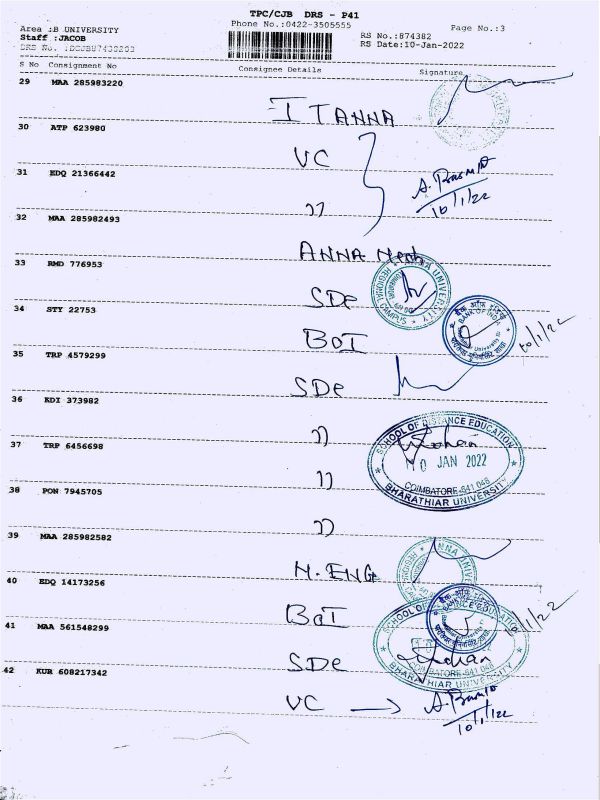 TPC/CJB DRS - P41
Phone No.:0422-3505555
Page No.:3
Area :B UNIVERSITY
Staff :JACOB
RS No.:874382
RS Date:10-Jan-2022
S No Consignment No Consignee Details Signature
29 MAA 285983220
I TANNA
30 ATP 623980
VC
31 EDQ 21366442
")
10/1/22
32 MAA 285982493
ANNA Mech
33 RMD 776953
SDe
34 STY 22753
BOI
10/1/22
35 TRP 4579299
SDe
36 KDI 373982
")
37 TRP 6456698
")
38 PON 7945705
")
39 MAA 285982582
M.ENG
40 EDQ 14173256
BOI
10/1/22
41 MAA 561548299
SDe
42 KUR 608217342
VC →
10/1/22
ANNA UNIVERSITY
REGIONAL CAMPUS
BANK OF INDIA
SCHOOL OF DISTANCE EDUCATION
10 JAN 2022
COIMBATORE-641 046
BHARATHIAR UNIVERSITY
SCHOOL OF DISTANCE EDUCATION
COIMBATORE-641 046
BHARATHIAR UNIVERSITY